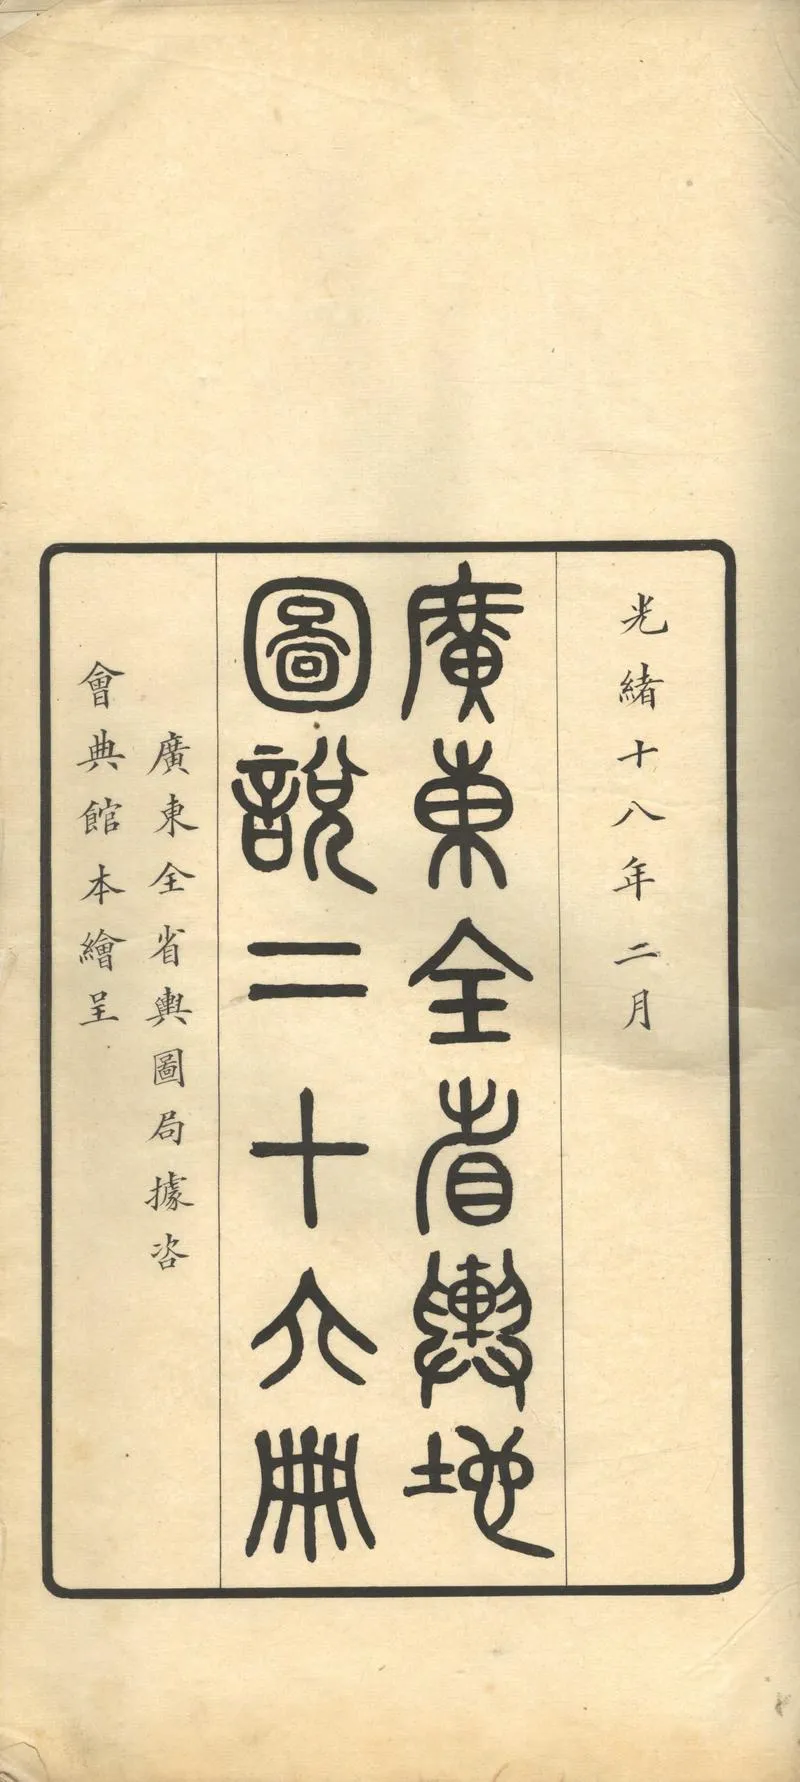 光緒十八年二月
廣東全省輿地
圖說二十六冊
廣東全省輿圖局據咨
會典館本繪呈